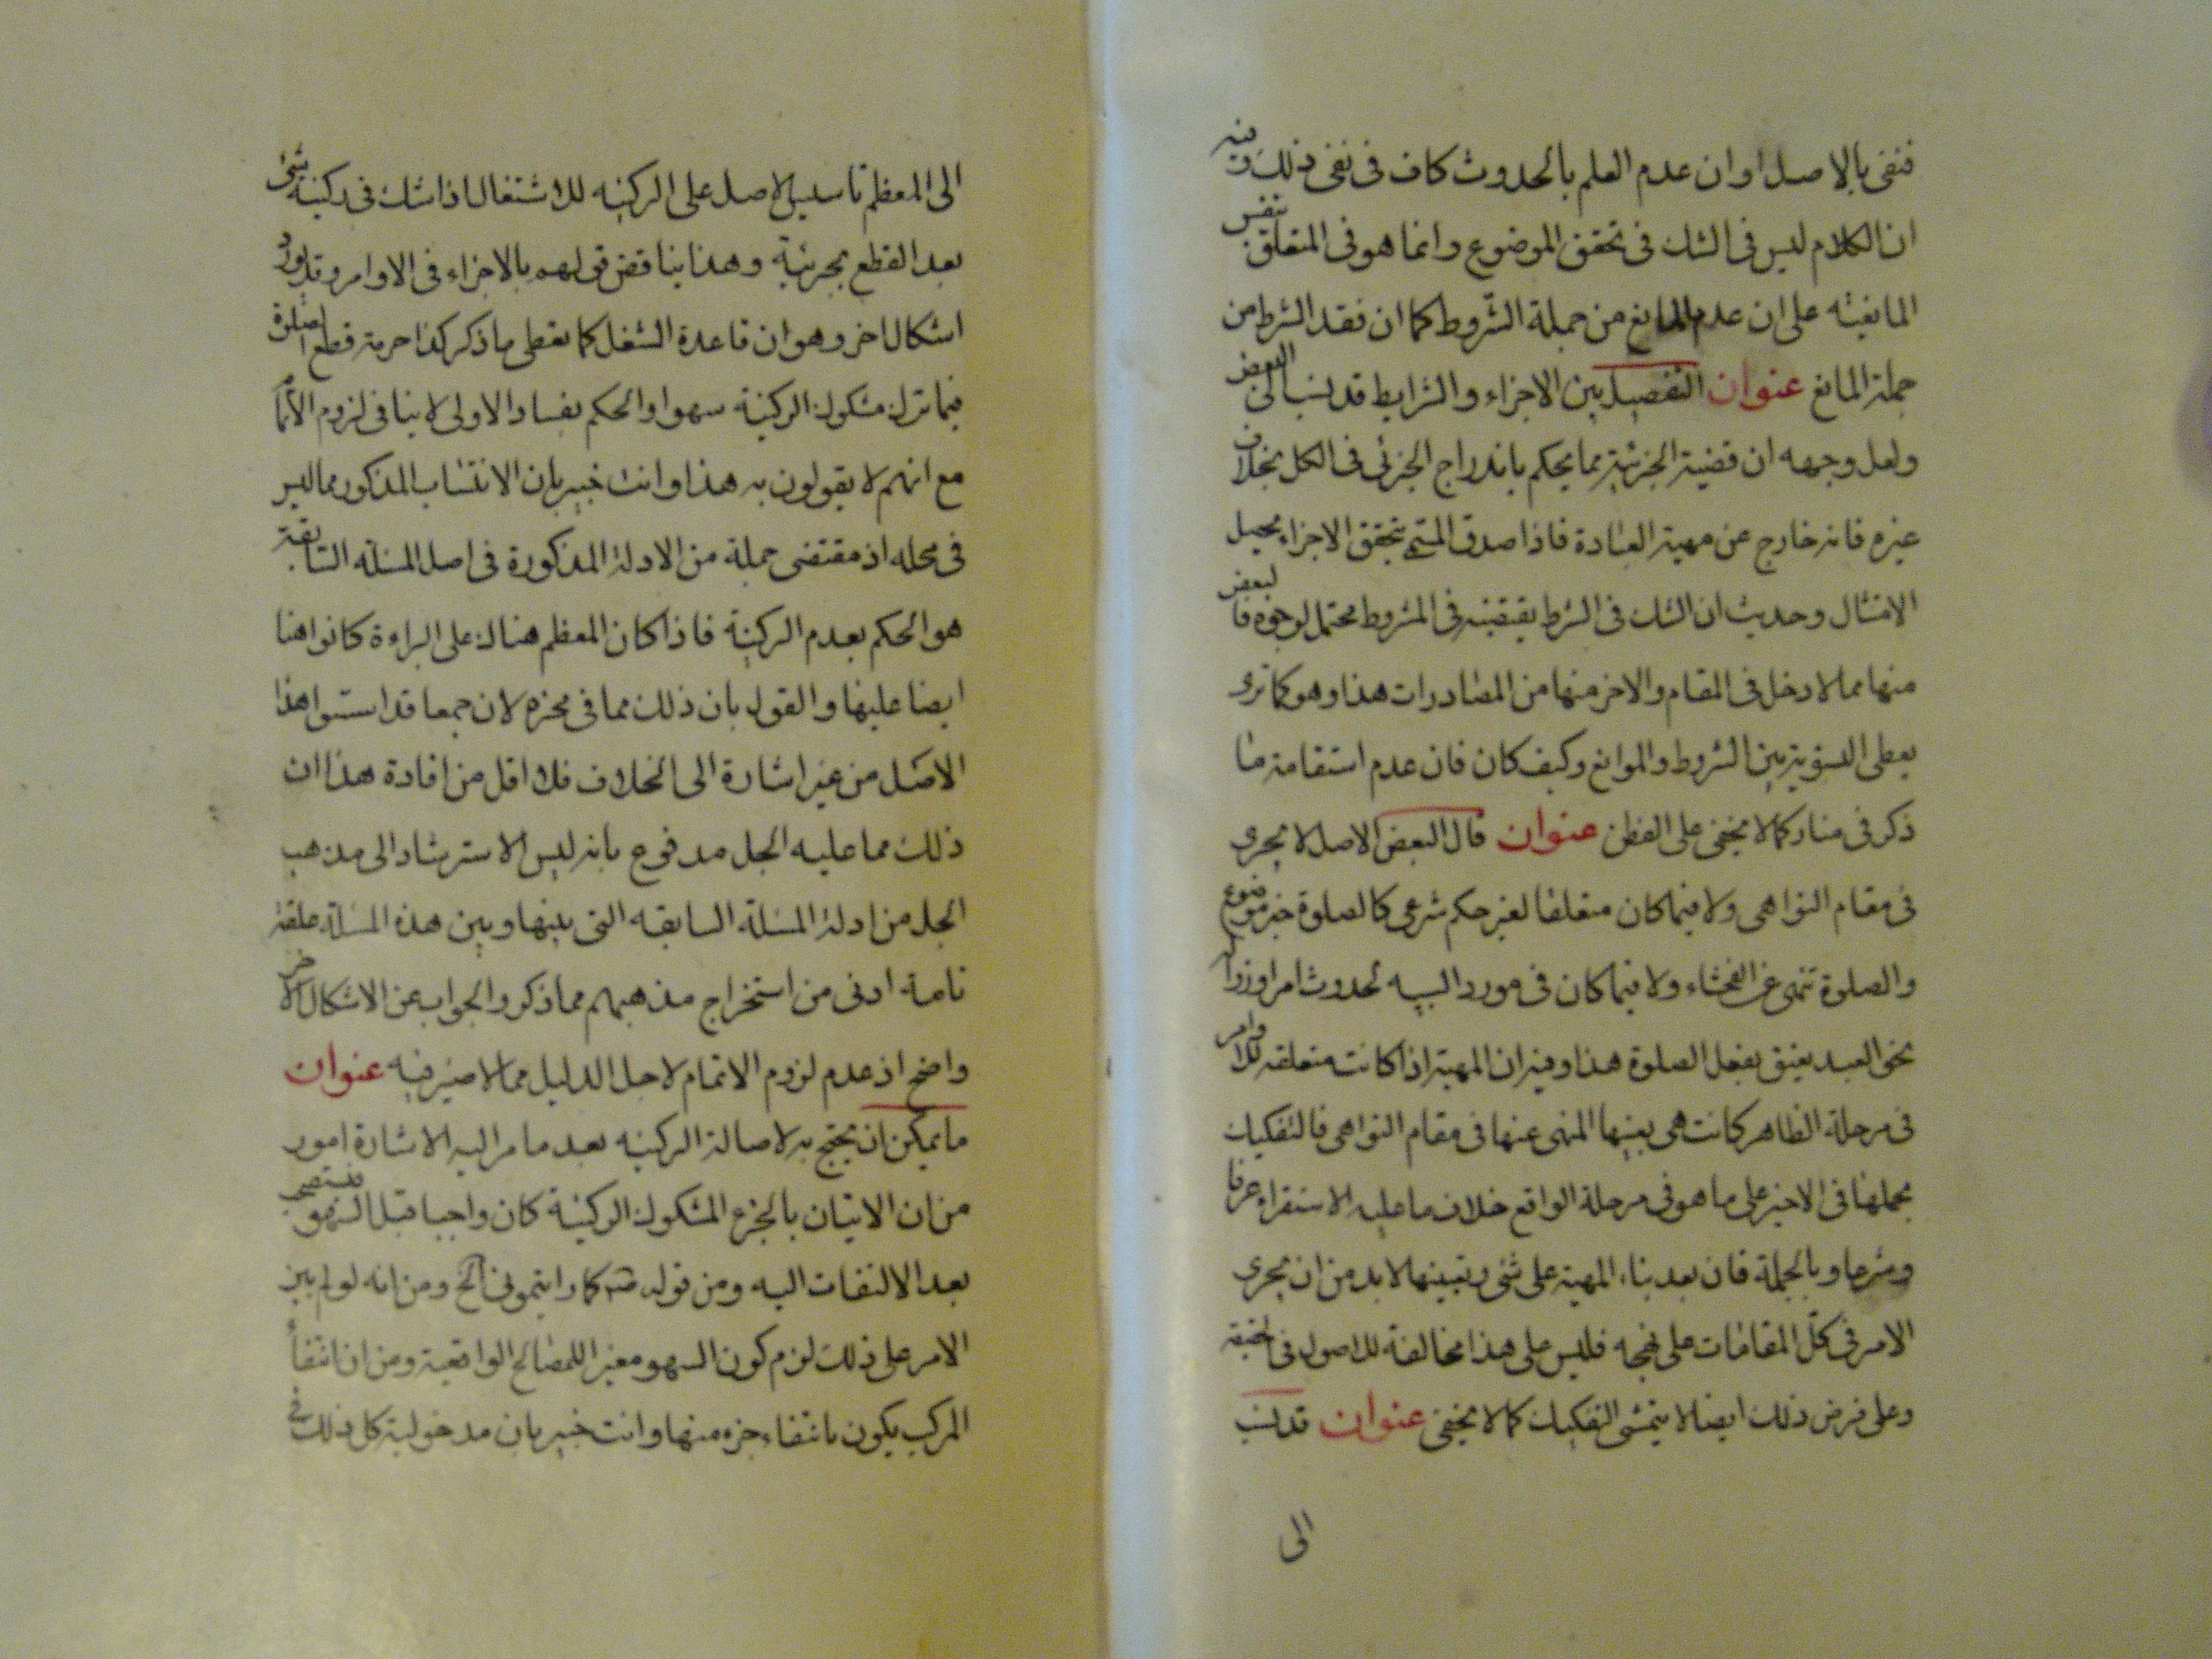 فنفى بالاصل او ان عدم العلم بالحدوث كاف فى نفى ذلك وفيه
ان الكلام ليس فى الشك فى تحقق الموضوع وانما هو فى المتعلق بنفس
المانعيته على ان عدم المانع من جملة الشروط كما ان فقد الشرط من
جملة المانع عنوان التفصيل بين الاجزاء والشرايط قد نسب الى البعض
ولعل وجهه ان قضية الجزئية مما يحكم باندراج الجزئى فى الكل بخلاف
غيره فانه خارج عن مهية العبادة فاذا صدق المسمى بتحقق الاجزاء يحصل
الامتثال وحديث ان الشك فى الشرط يقتضيه فى المشروط محتمل لوجوه فالبعض
منها مما لا دخل فى المقام والاخر منها من المصادرات هذا وهو كما ترى
يعطى التسوية بين الشروط والموانع وكيف كان فان عدم استقامة ما
ذكر فى منار كما لا يخفى على الفطن عنوان قال البعض الاصل لا يجرى
فى مقام النواهى ولا فيما كان متعلقا لغير حكم شرعى كالصلوة خير موضوع
والصلوة تنهى عن الفحشاء ولا فيما كان فى مورد السببه لحدوث امر او زواله
نحو العبد يعتق بفعل الصلوة هذا وفيه ان المهية اذا كانت متعلقة للاوامر
فى مرحلة الظاهر كانت هى بعينها المنهى عنها فى مقام النواهى فالتفكيك
بحملها فى الاخير على ما هو فى مرحلة الواقع خلاف ما عليه الاستقراء عرفا
وشرعا وبالجملة فان بعد بناء المهية على شئ وتعيينها لا بد من ان يجرى
الامر فى كل المقامات على نهجه فليس على هذا مخالفة للاصول فى الحقيقة
وعلى فرض ذلك ايضا لا يتمشى التفكيك كما لا يخفى عنوان قد نسب
الى
الى المعظم تاسيس الاصل على الركنيه للاشتغال اذا شك فى ركنية شئ
بعد القطع بجزئية وهذا يناقض قولهم بالاجزاء فى الاوامر وقد يورد
اشكال اخر وهو ان قاعدة الشغل كما يعطى ما ذكر كذا حرمة قطع الصلوة
فيما ترك مشكوك الركنية سهوا والحكم بفساد الاولى لا ينافى لزوم الاتمام
مع انهم لا يقولون به هذا وانت خبير بان الانتساب المذكور مما ليس
فى محله اذ مقتضى جملة من الادلة المذكورة فى اصل المسئله السابقة
هو الحكم بعدم الركنية فاذا كان المعظم هناك على البراءة كانوا هنا
ايضا عليها والقول بان ذلك مما فى محزه لان جمعا قد اسسوا هذا
الاصل من غير اشارة الى الخلاف فلا اقل من افادة هذا ان
ذلك مما عليه الجل مدفوع بانه ليس الاسترشاد الى مذهب
الجل من ادلة المسئلة السابقه التى بينها وبين هذه المسئلة علقة
تامة ادنى من استخراج مذهبهم مما ذكر والجواب عن الاشكال الاخر
واضح اذ عدم لزوم الاتمام لاجل الدليل مما لا ضير فيه عنوان
ما يمكن ان يحتج به لاصالة الركنيه بعد ما مر اليه الاشارة امور
من ان الاتيان بالجزء المشكوك الركنية كان واجبا قبل السهو فيستصحب
بعد الالتفات اليه ومن قوله كما رايتمونى الخ ومن انه لو لم يبن
الامر على ذلك لزم كون السهو مغيرا للمصالح الواقعية ومن ان انتفاء
المركب يكون بانتفاء جزء منها وانت خبير بان مدخولية كل ذلك فى